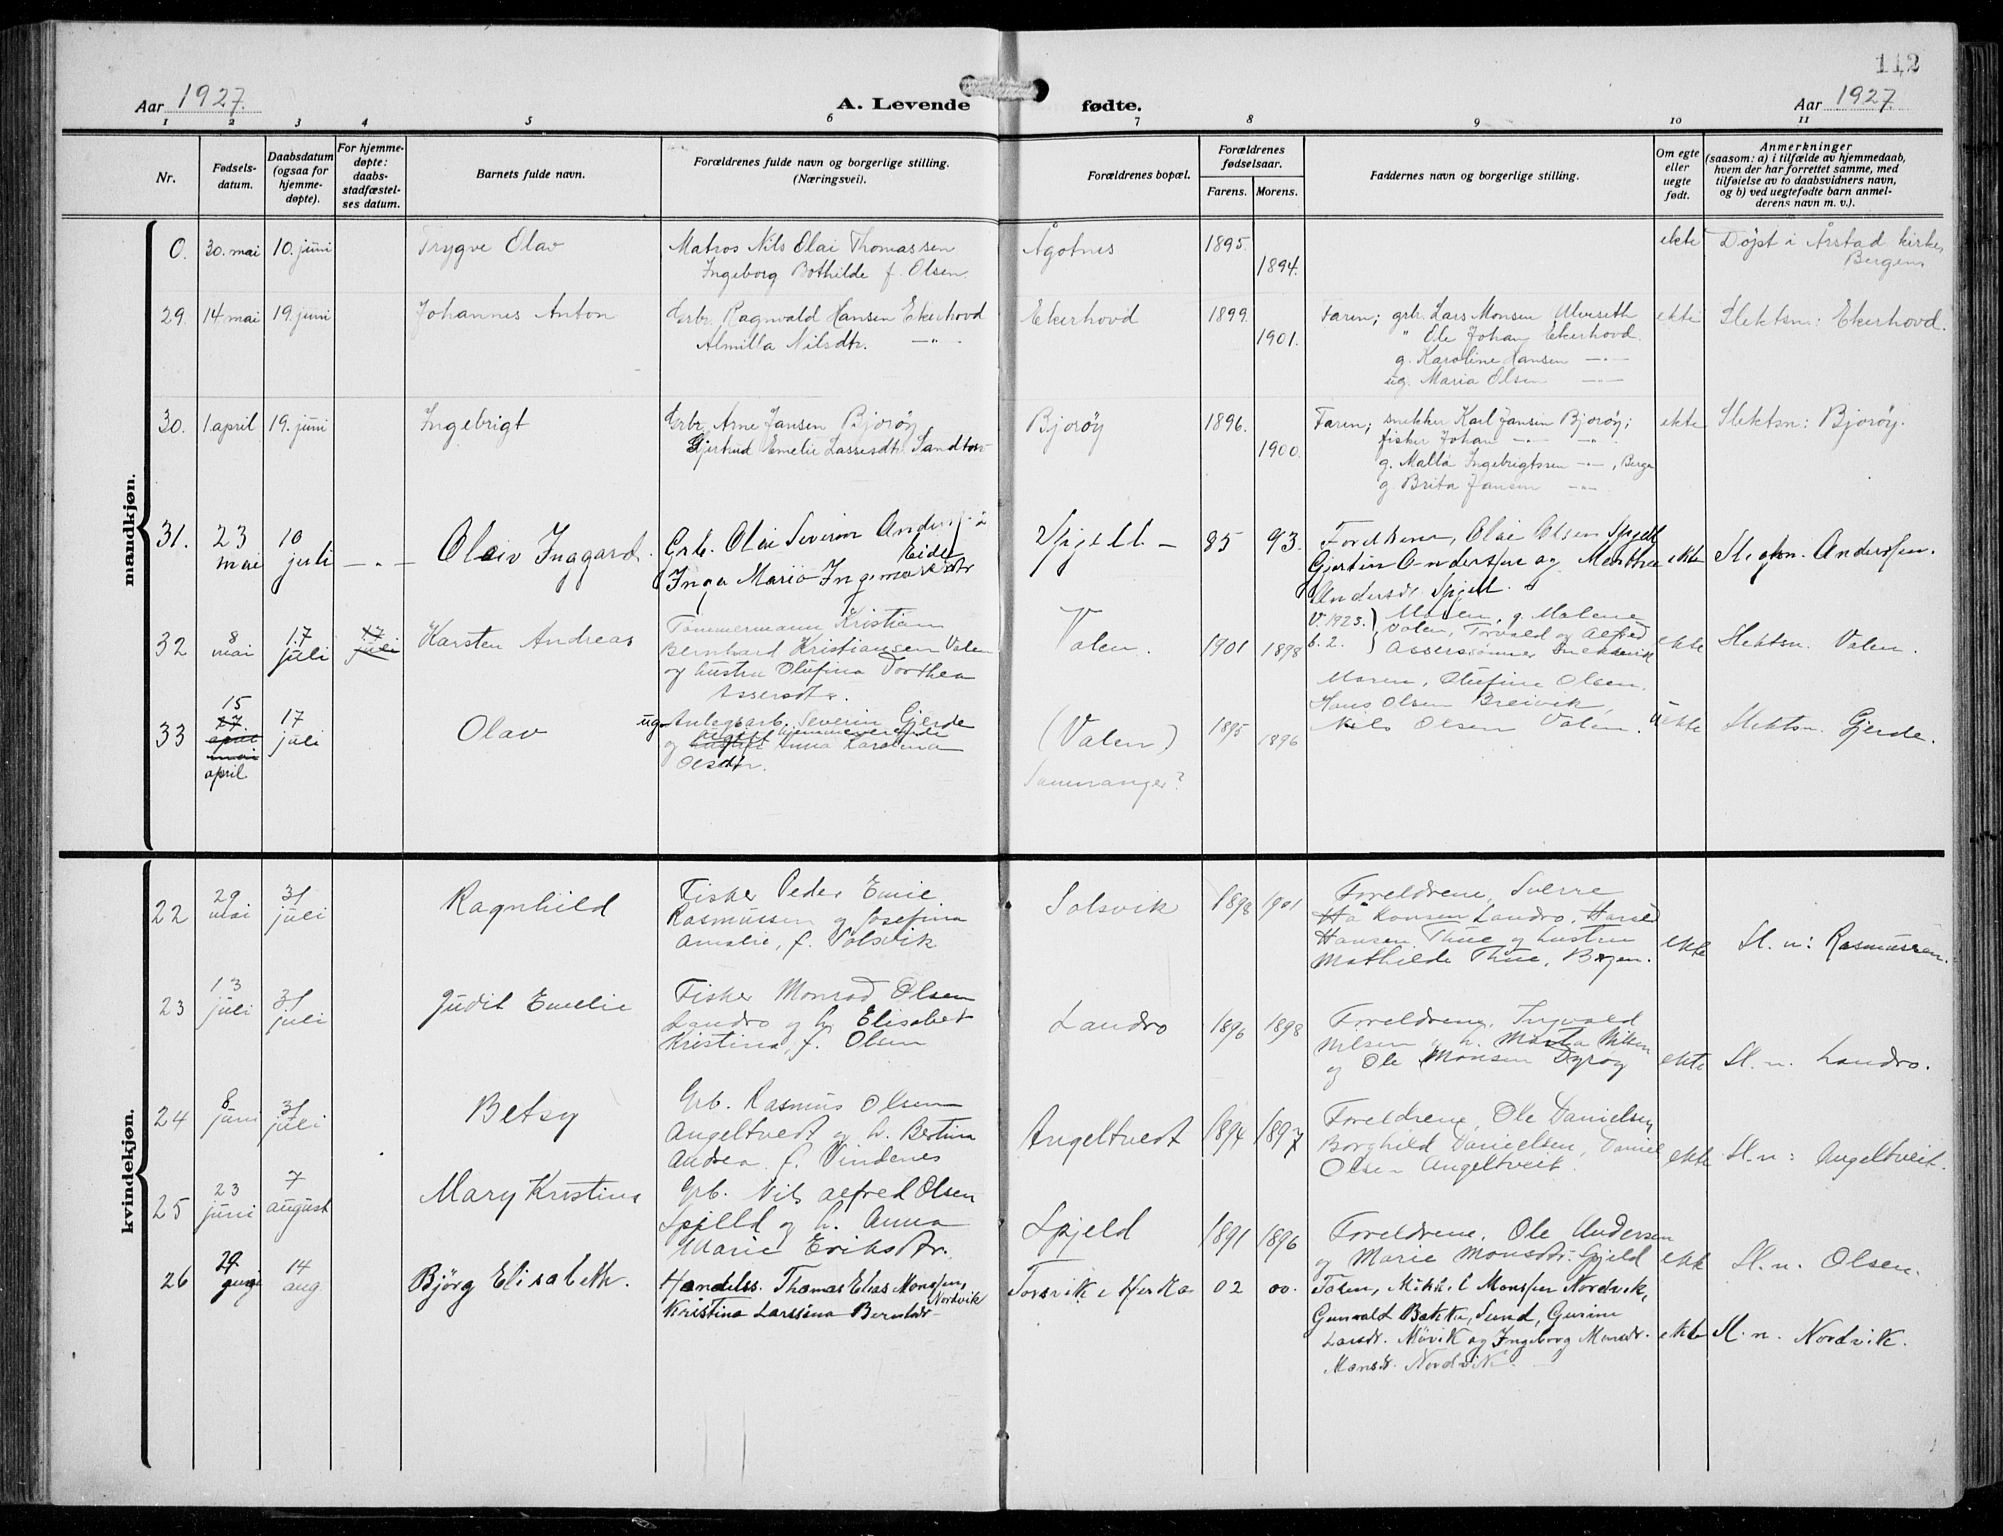 112
Aar 1927.
A. Levende fødte.
Aar 1927
1 2 3 4 5 6 7 8 9 10 11
Nr.
Fødsels-
datum.
Daabsdatum
(ogsaa for
hjemme-
døpte).
For hjemme-
døpte:
daabs-
stadfæstel-
ses datum.
Barnets fulde navn.
Forældrenes fulde navn og borgerlige stilling.
(Næringsvei).
Forældrenes bopæl.
Forældrenes
fødselsaar.
Farens. Morens.
Faddernes navn og borgerlige stilling.
Om egte
eller
uegte
født.
Anmerkninger
(saasom: a) i tilfælde av hjemmedaab,
hvem der har forrettet samme, med
tilføielse av to daabsvidners navn,
og b) ved uegtefødte barn anmel-
derens navn m. v.).
mandkjøn.
0. 30. mai 10. juni Trygve Olav
Matros Nils Olai Thomassen
Ingeborg Bothilde f. Olsen
Ågotnes 1895 1894.
ekte Døpt i Årstad kirke
Bergen
29. 14 mai 19. juni Johannes Anton
Grbr. Ragnvald Hansen Ekerhovd
Almilla Nilsdtr. —"—
Ekerhovd 1899 1901.
Faren; grb. Lars Monsen Ulveseth
" Ole Johan Ekerhovd.
g. Karoline Hansen —"—
ug. Maria Olsen —"—
ekte Slektsn: Ekerhovd.
30. 1. april 19. juni Ingebrigt
Grbr. Arne Jansen Bjorøy
Gjertrud Emelie Lassesdtr.
Bjorøy 1896. 1900.
Faren; snekker Karl Jansen Bjorøy;
fisker Johan —"— —"—
g. Malla Ingebrigtssen —"—, Berge
g. Brita Jansen —"—
ekte Slektsn: Bjorøy.
31. 23 mai 10 juli —"— Olaiv Inggard.
Grb. Olai Severin
Inga Maria
Spjell — 85 93.
Foreldrene, Olai Olsen Spjell
Gjertin Anderssen og
Andersdr. Spjell.
ekte Slegtn. Anderssen.
32 8 mai 17 juli 17 juli Karsten Andreas
Tømmermann Kristian
Bernhard Kristiansen Valen
og hustru Olufina Dorthea
Assersdtr.
Valen. 1901 1898
V. 1923.
b. 2.
Moren, g. Malene
Valen, Torvald og Alfred
Asserssønner Snekkevik
ekte Slektsn. Valen.
33 15 17 april mai april 17 juli Olav
ug. Anlegsarb. Severin Gjerde
og ugift Anna Karolina
Olsdtr.
(Valen)
Samnanger?
1895 1896
Moren, Olufine Olsen,
Hans Olsen Breivik,
Nils Olsen Valen.
uekte Slektsn. Gjerde.
kvindekjøn.
22 29 mai 31 juli Ragnhild
Fisker Peder Emil
Rasmussen og Josefina
Amalie, f. Solsvik
Solsvik 1898 1901
Foreldrene, Sverre
Håkonsen Landro, Harald
Hansen Thue og hustru
Mathilde Thue, Bergen.
ekte Sl. n: Rasmussen.
23 13 juli 31 juli Judit Emelie
Fisker Monrad Olsen
Landro og h. Elisabet
Kristina, f. Olsen
Landro 1896 1898
Foreldrene, Ingvald
Nilsen og h. Marta Nilsen
og Ole Monsen Dyrøy
ekte Sl. n. Landro.
24 8 juni 31 juli Betsy
Grb. Rasmus Olsen
Angeltvedt og h. Bertina
Andrea f. Vindenes
Angeltvedt 1894 1897
Foreldrene, Ole Danielsen,
Borghild Danielsen, Daniel
Olsen Angeltveit.
ekte Sl. n: Angeltveit.
25 23 juni 7 august Mary Kristina
Grb. Nils Alfred Olsen
Spjelld og h. Anna
Marie Eriksdtr.
Spjeld 1891 1896
Foreldrene, Ole Andersen
og Marie Monsdtr. Spjeld
ekte Sl. n. Olsen.
26 29 juni 14 aug Bjørg Elisabeth.
Handelss. Thomas Elias Monssen
Nordvik
Kristina Larssina Berntsdr
Torsvik i Herdla 02 00.
Faren, Mikkel Monssen Nordvik,
Gunvald Bakke, Sund, Gurine
Larsdr. Møvik og Ingeborg Monsdr.
Monsdr. Nordvik.
ekte Sl. n. Nordvik.